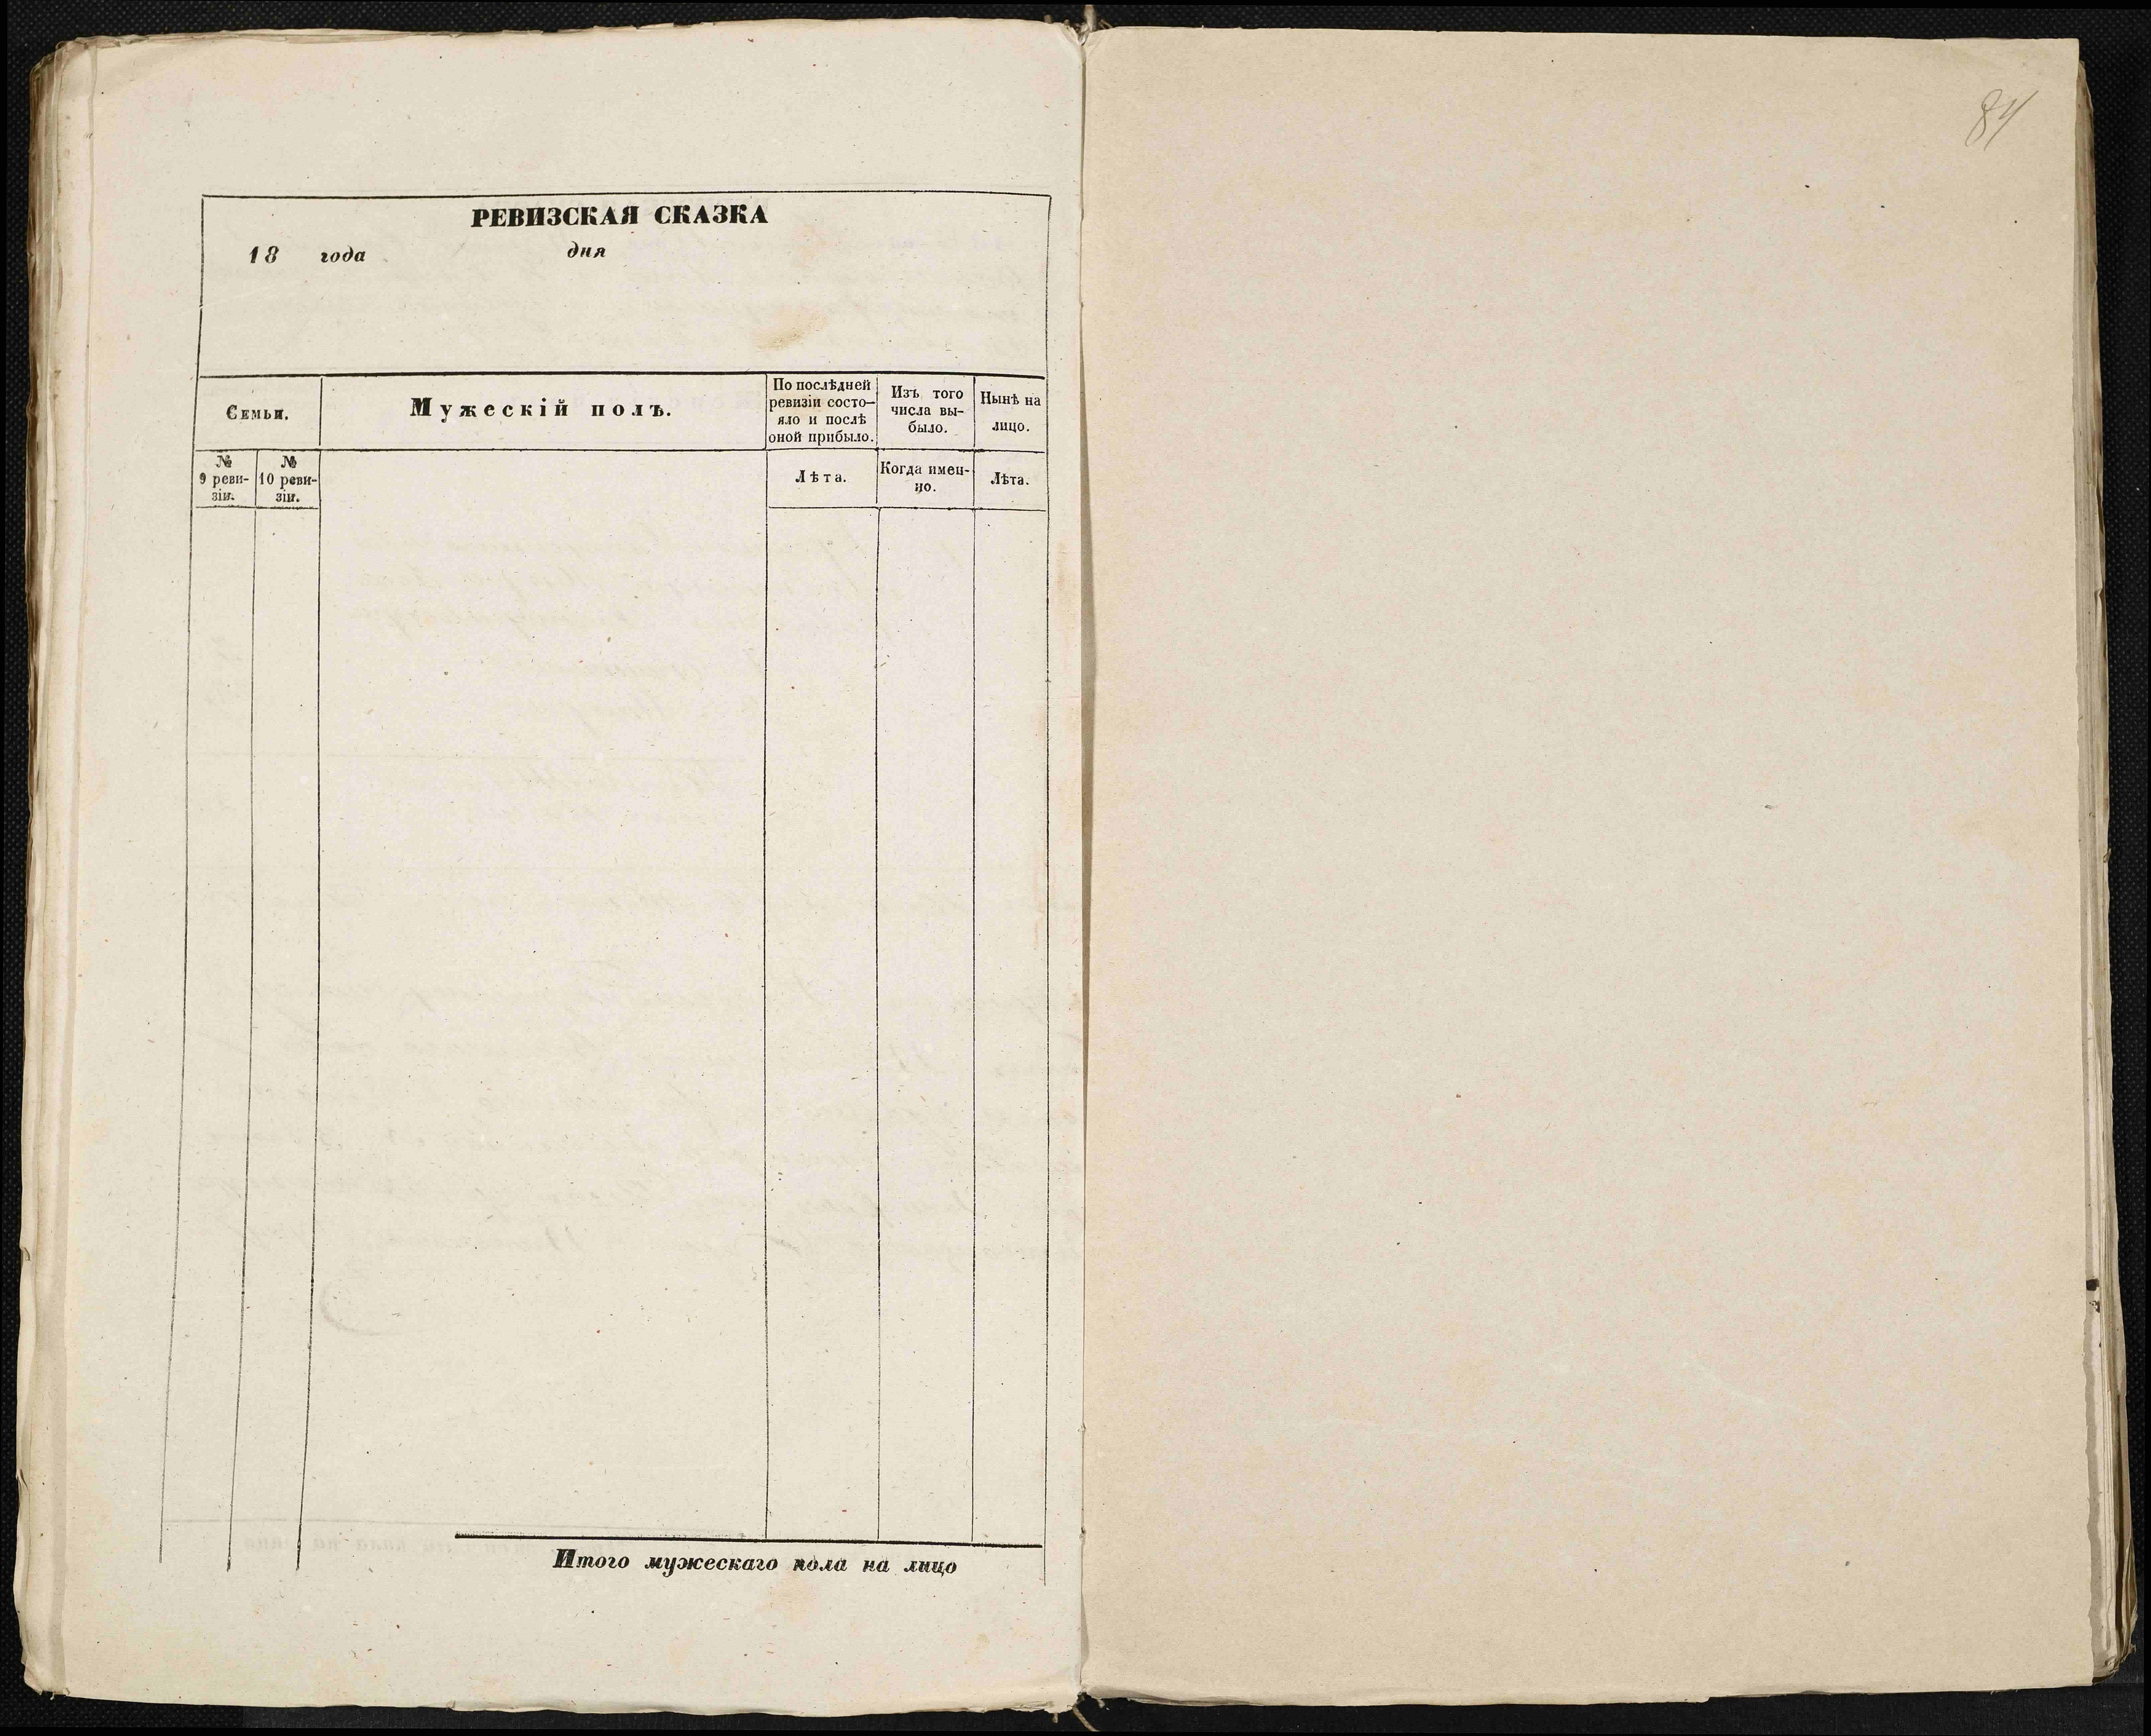 84
РЕВИЗСКАЯ СКАЗКА
18 года дня
Семьи.
Мужескій полъ.
По послѣдней
ревизіи состо-
яло и послѣ
оной прибыло.
Изъ того
числа вы-
было.
Нынѣ на
лицо.
№
9 реви-
зіи.
№
10 реви-
зіи.
Лѣта.
Когда имен-
но.
Лѣта.
Итого мужескаго пола на лицо